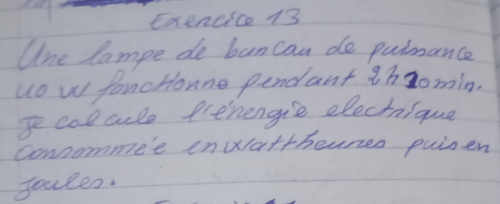 Exercice 13
Une lampe de bureau de puissance
40 W fonctionne pendant 2h 20min.
je calcule l'énergie electrique
consommée en wattheures puis en
joules.